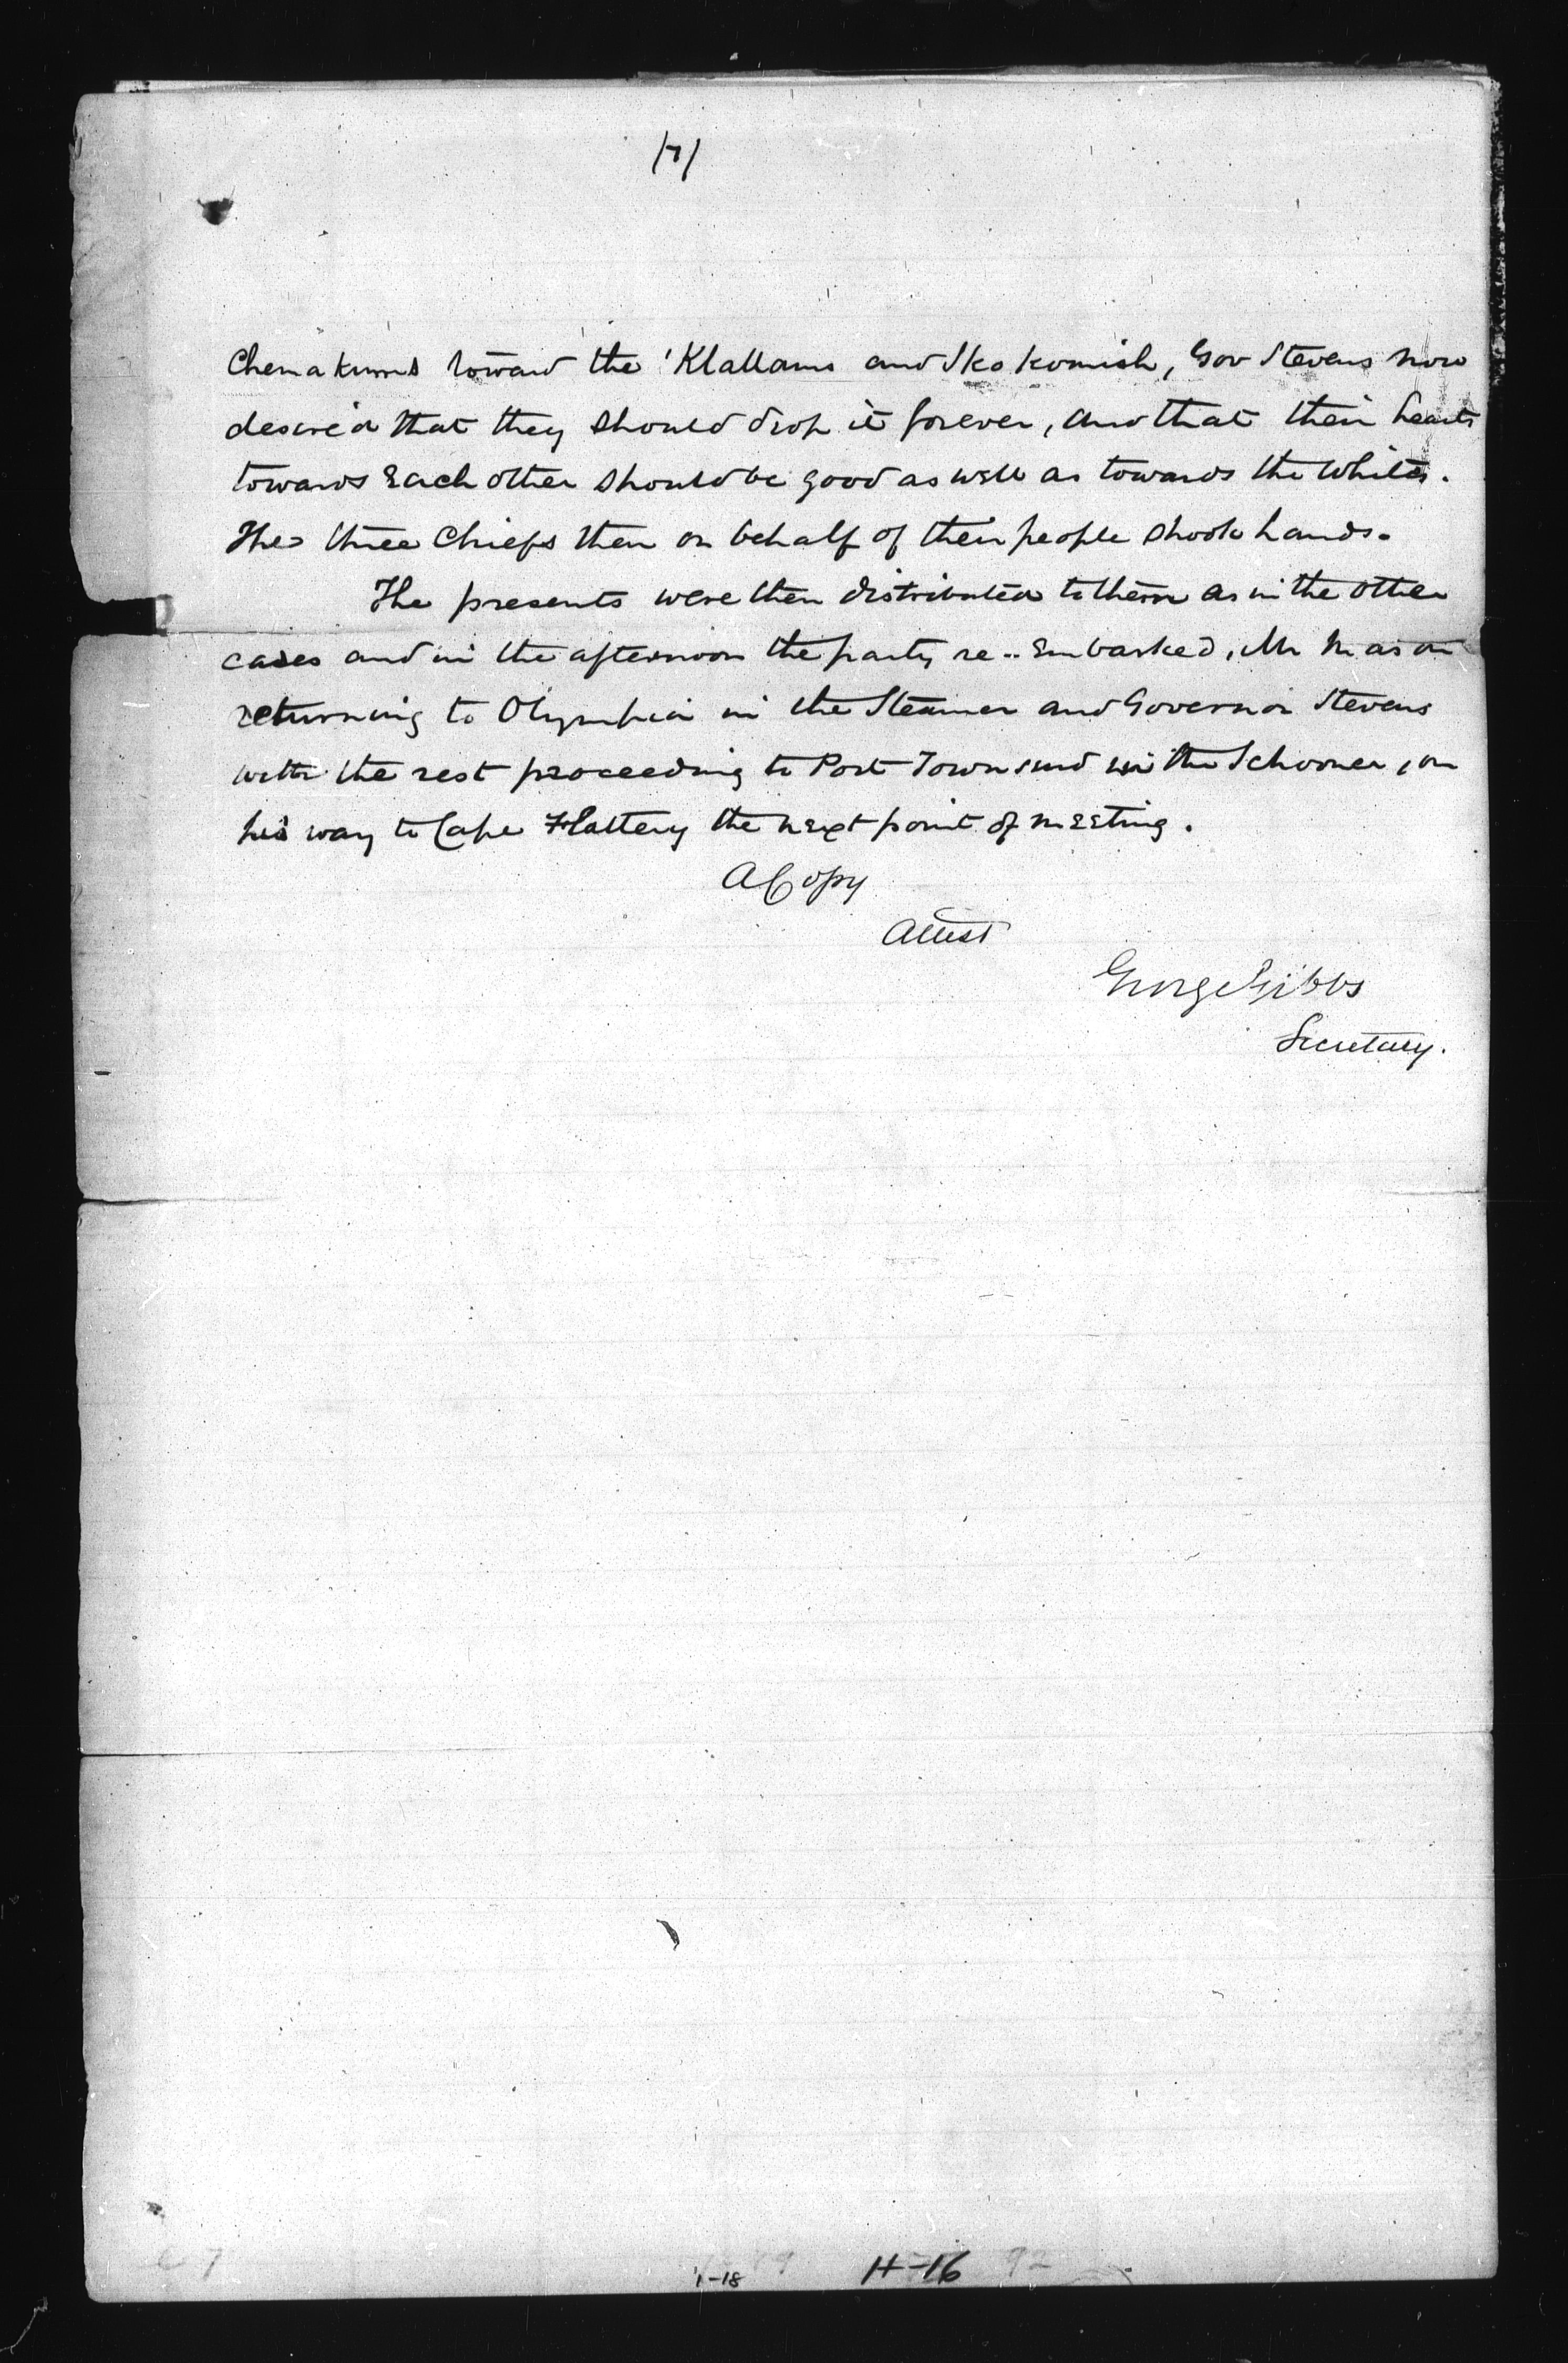 /7/
Chemakums toward the 'Klallams and Skokomish, Gov Stevens now
desired that they should drop it forever, and that their hearts
towards Each other should be good as well as towards the Whites.
The three Chiefs then on behalf of their people shook hands.
The presents were then distributed to them as in the other
cases and in the afternoon the party re-Embarked, Mr Mason
returning to Olympia in the Steamer and Governor Stevens
with the rest proceeding to Port Townsend in the Schooner, on
his way to Cape Flattery the next point of meeting.
A Copy
Attest
George Gibbs
Secretary.
1-18 H-16 92